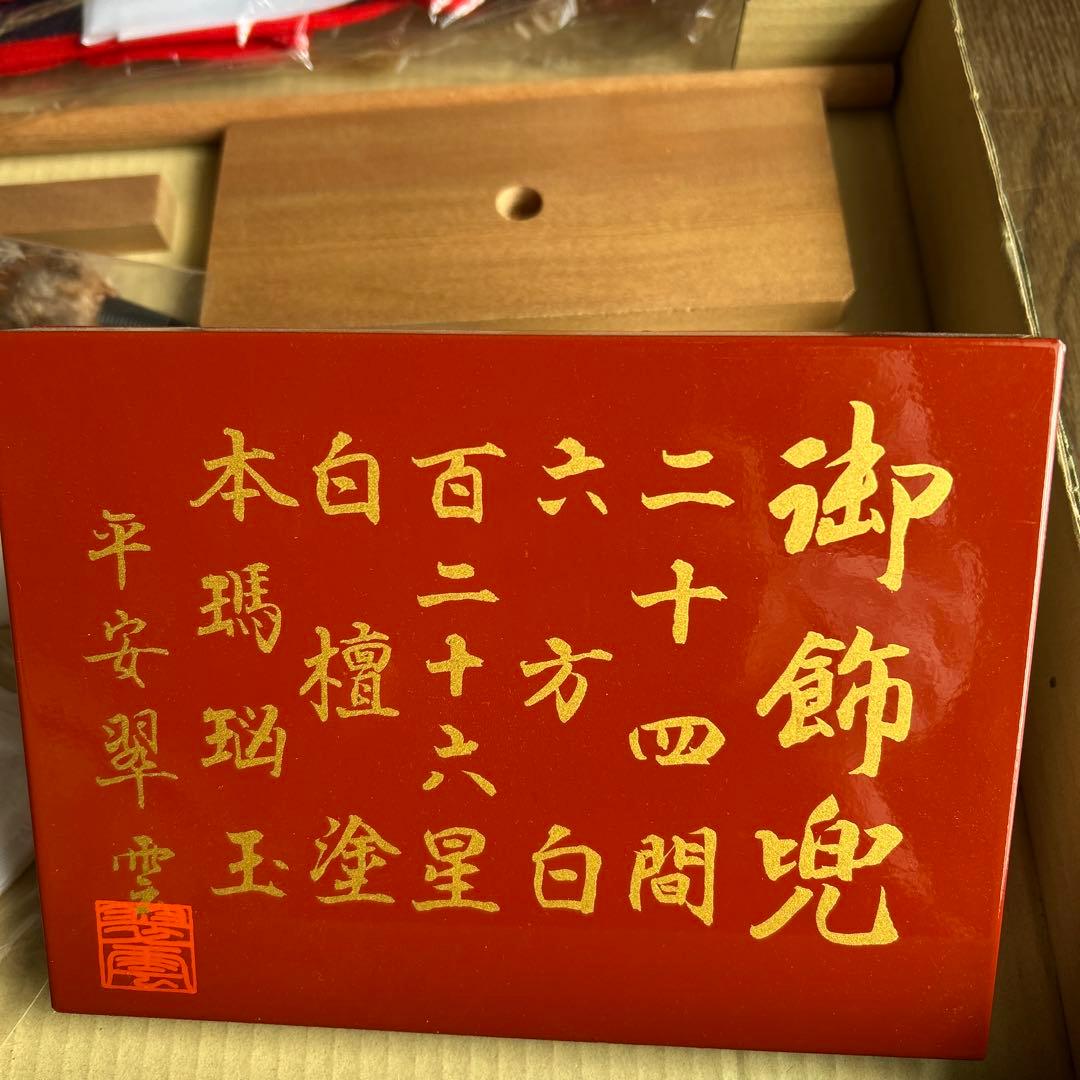 御飾兜
二十四間
六方白
百二十六星
白檀塗
本瑪瑙玉
平安翠雲
翠雲